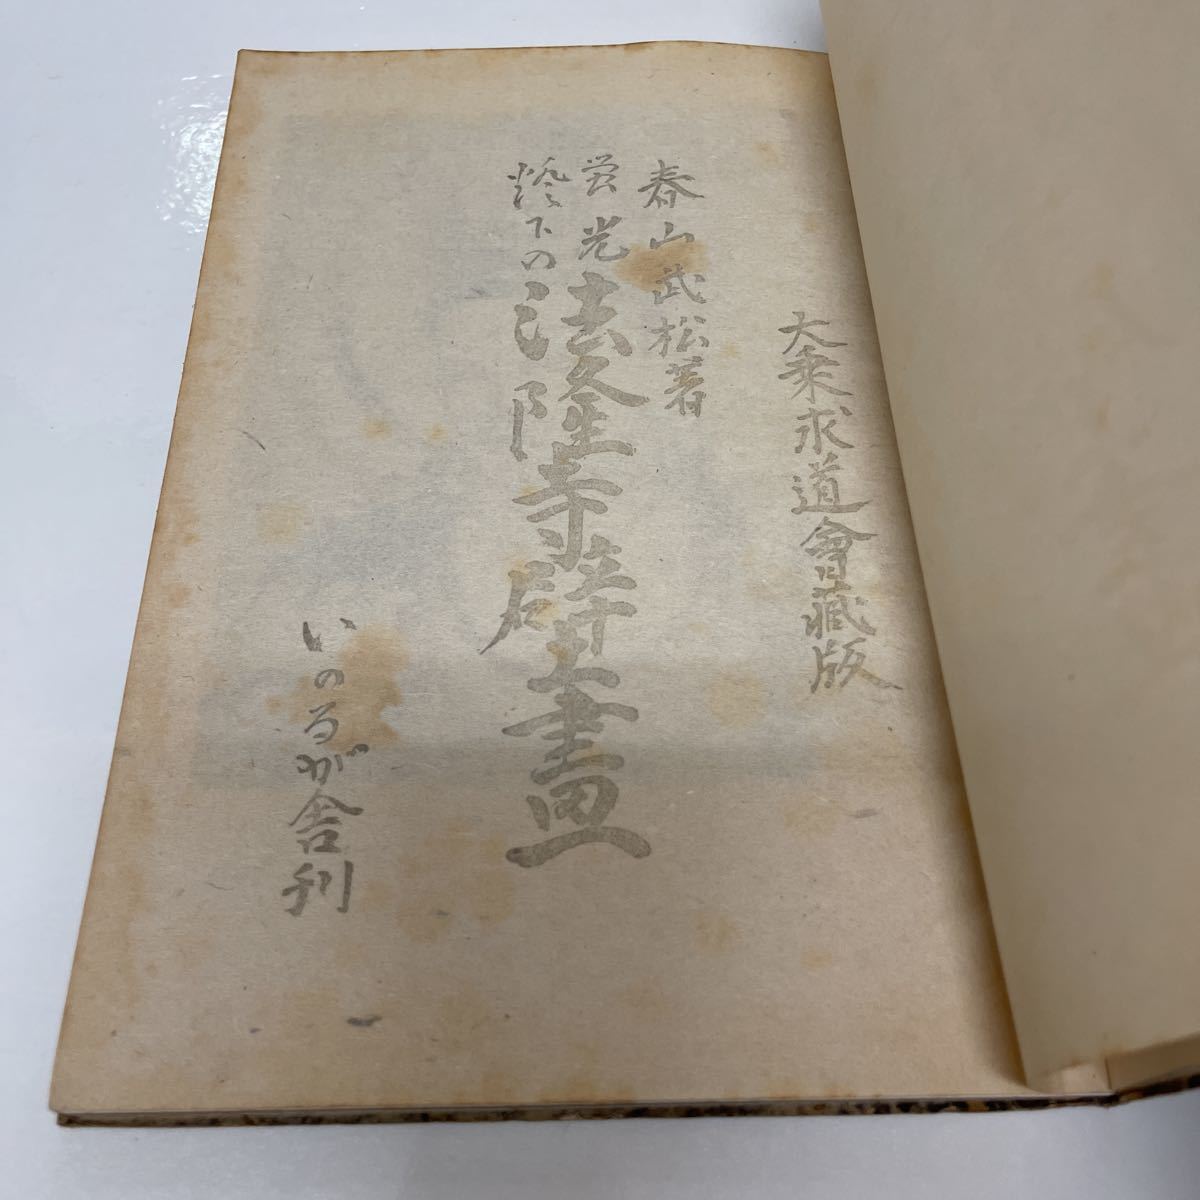 大乗求道會藏版
春山武松著
螢光
燈下の
法隆寺壁畫
いのるが舎刊